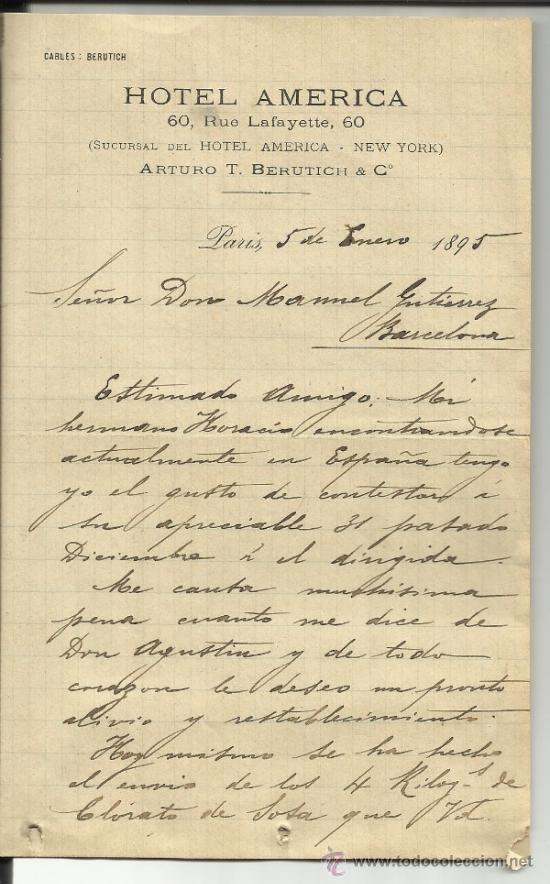 CABLES: BERUTICH
HOTEL AMERICA
60, Rue Lafayette, 60
(SUCURSAL DEL HOTEL AMERICA - NEW YORK)
ARTURO T. BERUTICH & Cº
Paris, 5 de Enero 1895
Señor Don Manuel Gutierrez
Barcelona
Estimado Amigo. Mi
hermano Horacio encontrandose
actualmente en España tengo
yo el gusto de contestar á
su apreciable 31 pasado
Diciembre á el dirigida.
Me causa muchisima
pena cuanto me dice de
Don Agustin y de todo
corazon le deseo un pronto
alivio y restablecimiento.
Hoy mismo se ha hecho
el envio de los 4 Kilog.s de
Clorato de Sosa que Vd.
www.todocoleccion.net